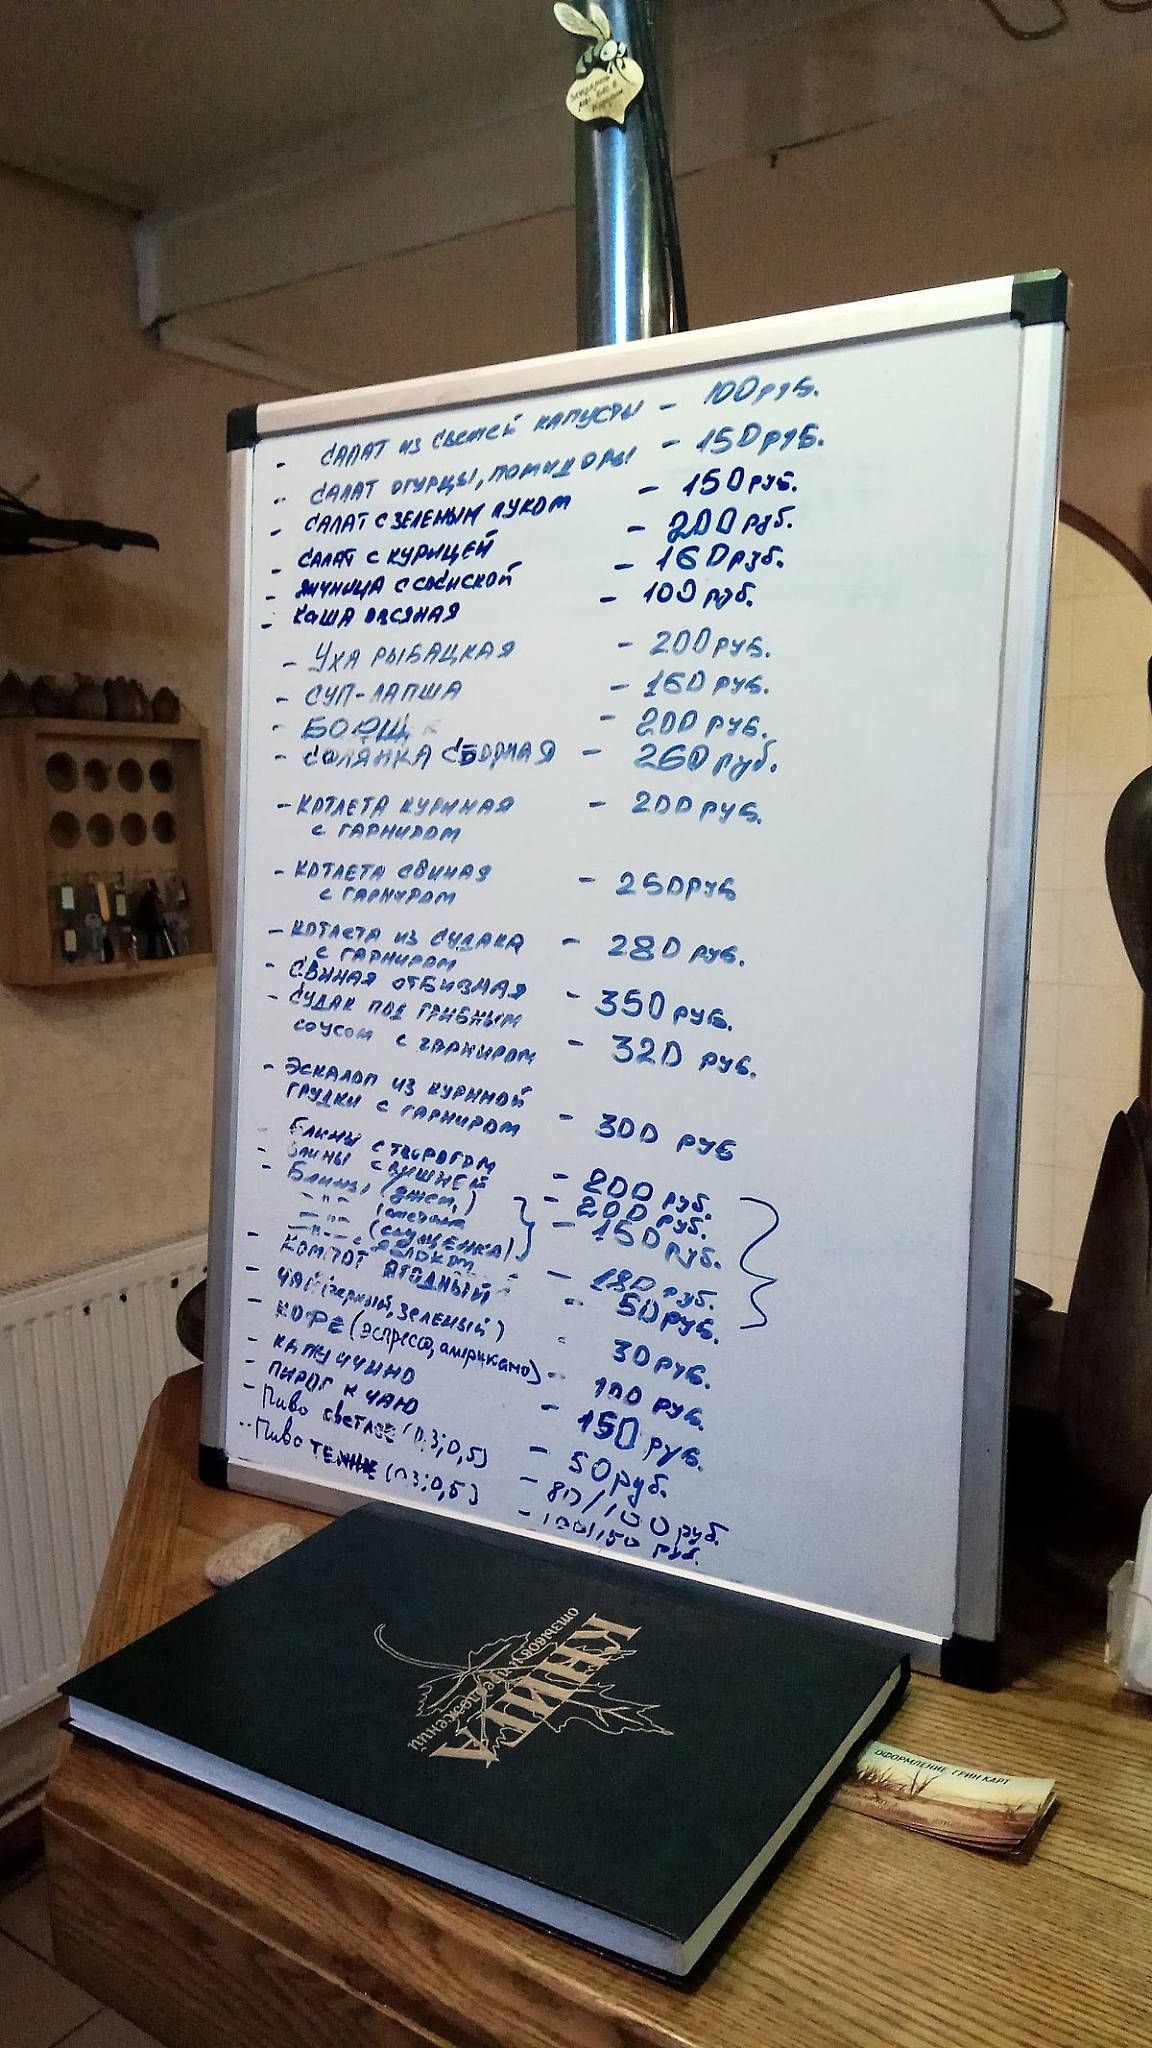 - САЛАТ ИЗ СВЕЖЕЙ КАПУСТЫ - 100 руб.
- САЛАТ ОГУРЦЫ, ПОМИДОРЫ - 150 руб.
- САЛАТ С ЗЕЛЕНЫМ ЛУКОМ - 150 руб.
- САЛАТ С КУРИЦЕЙ - 200 руб.
- ЯИЧНИЦА С СОСИСКОЙ - 160 руб.
- КАША ОВСЯНАЯ - 100 руб.
- УХА РЫБАЦКАЯ - 200 руб.
- СУП-ЛАПША - 160 руб.
- БОРЩ - 200 руб.
- СОЛЯНКА СБОРНАЯ - 260 руб.
- КОТЛЕТА КУРИНАЯ - 200 руб.
С ГАРНИРОМ
- КОТЛЕТА СВИНАЯ - 250 руб
С ГАРНИРОМ
- КОТЛЕТА ИЗ СУДАКА - 280 руб.
С ГАРНИРОМ
- СВИНАЯ ОТБИВНАЯ - 350 руб.
- СУДАК ПОД ГРИБНЫМ
СОУСОМ С ГАРНИРОМ - 320 руб.
- ЭСКАЛОП ИЗ КУРИНОЙ
ГРУДКИ С ГАРНИРОМ - 300 руб
БЛИНЫ С ТВОРОГОМ - 200 руб.
- БЛИНЫ С ВИШНЕЙ - 200 руб.
- БЛИНЫ (джем,) - 150 руб.
-"- (сметана
-"- (СГУЩЕНКА)
-"- с ЯБЛОКОМ - 180 руб.
- КОМПОТ ЯГОДНЫЙ - 50 руб.
- ЧАЙ (черный, зеленый) - 30 руб.
- КОФЕ (эспрессо, американо) - 100 руб.
- КАПУЧЧИНО - 150 руб.
- ПИРОГ К ЧАЮ - 50 руб.
- Пиво СВЕТЛОЕ (0,3; 0,5) - 80/100 руб.
- Пиво (0,3; 0,5) - 100/150 руб.
КНИГА
отзывов и предложений
ОФОРМЛЕНИЕ ГРИН КАРТ